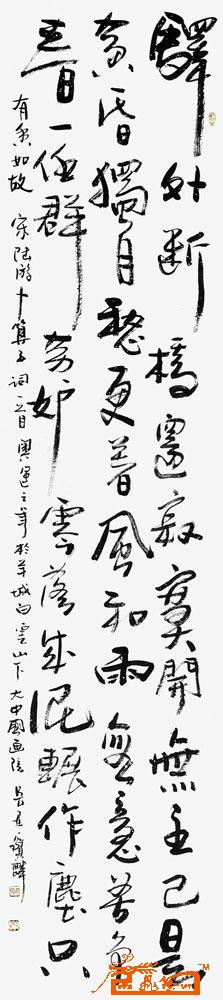 驛外斷橋邊寂寞開無主已是
黃昏獨自愁更著風和雨無意苦爭
春一任群芳妒零落成泥輾作塵只
有香如故 宋陸游卜算子詞一首 奧運之年於羊城白雲山下大中國畫院